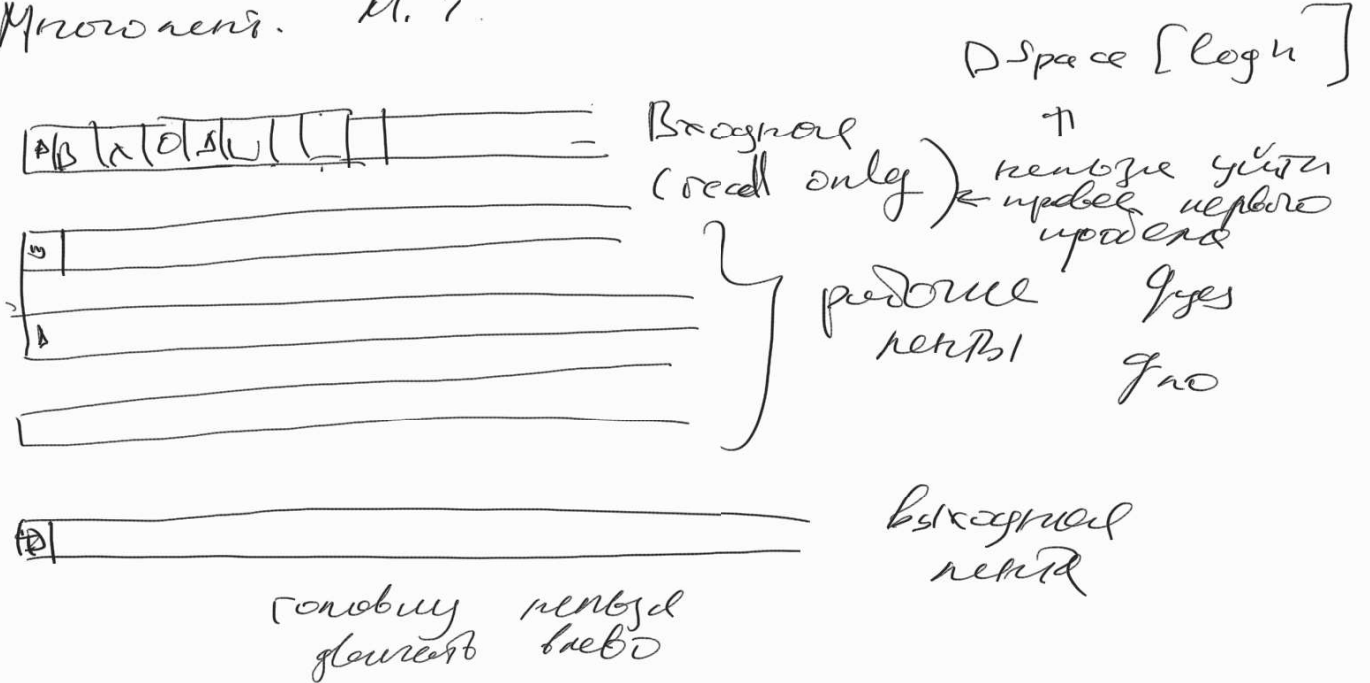 Многолент. М. Т.
DSpace [log n]
▷ В Х О Д ␣ ␣
Входная
(read only)
нельзя уйти
правее первого
пробела
▷
▷
рабочие
ленты
q yes
q no
▷
выходная
лента
головку нельзя
двигать влево